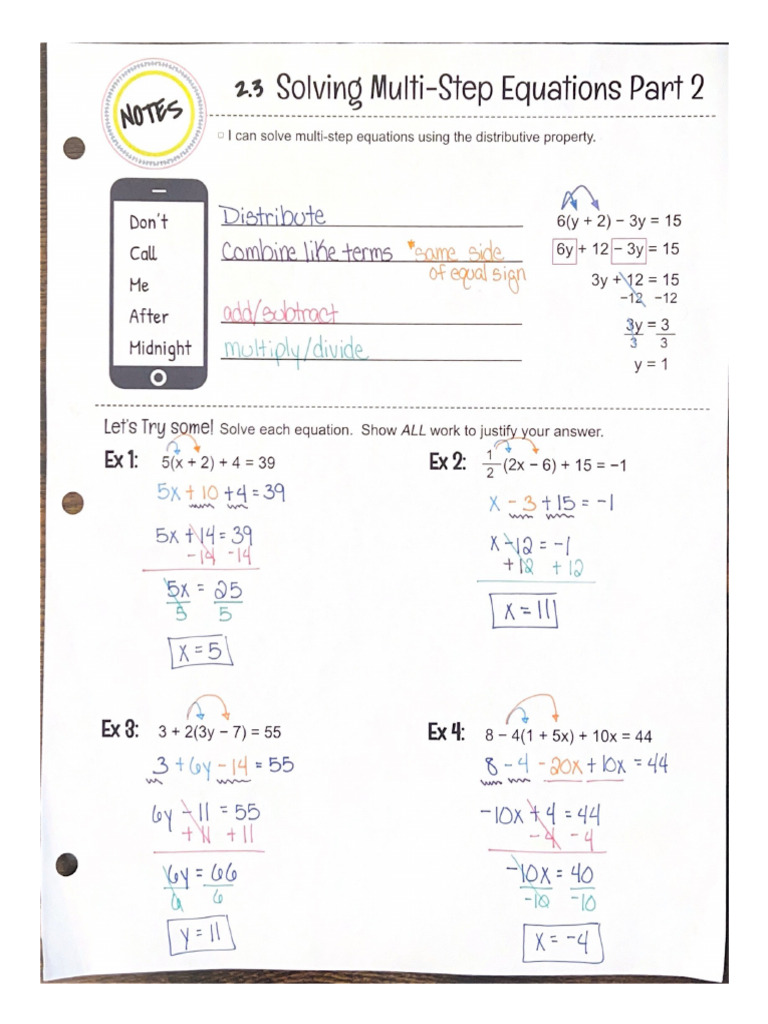 NOTES
2.3 Solving Multi-Step Equations Part 2
I can solve multi-step equations using the distributive property.
Don't
Call
Me
After
Midnight
Distribute
Combine like terms *same side
of equal sign
add/subtract
multiply/divide
6(y + 2) − 3y = 15
6y + 12 − 3y = 15
3y + 12 = 15
−12 −12
3y = 3
3 3
y = 1
Let's Try some! Solve each equation. Show ALL work to justify your answer.
Ex 1: 5(x + 2) + 4 = 39
5x + 10 + 4 = 39
5x + 14 = 39
−14 −14
5x = 25
5 5
x = 5
Ex 2: 1/2 (2x − 6) + 15 = −1
x − 3 + 15 = −1
x − 12 = −1
+12 +12
x = 11
Ex 3: 3 + 2(3y − 7) = 55
3 + 6y − 14 = 55
6y − 11 = 55
+11 +11
6y = 66
6 6
y = 11
Ex 4: 8 − 4(1 + 5x) + 10x = 44
8 − 4 − 20x + 10x = 44
−10x + 4 = 44
−4 −4
−10x = 40
−10 −10
x = −4